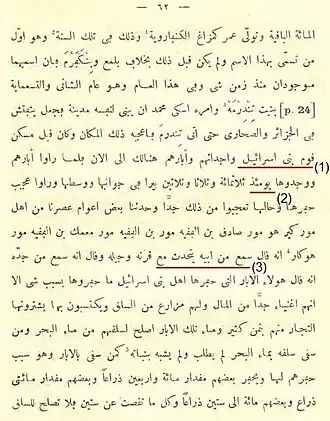 – ٦٢ –
المائة الباقية وتولّى عمر كمزاغ الكنباروية وذلك فى تلك السنة وهو اوّل
من تسمّى بهذا الاسم ولم يكن قبل ذلك بخلاف يلمع وبنكيرم بان اسميهما
موجودان منذ زمن شى وفى هذا العام وهو عام الثانى والتسعماية
[p. 24] بنيت تندرمة وامره اسكى محمد ان يبنى لنفسه مدينة فجعل يتفتش
فى الجزائر والصحارى حتى اتى تندرم باعجبه ذلك المكان وكان قبل مسكن
قوم بنى اسرائيل واجداثهم وآبارهم هنالك الى الان بلما راوا آبارهم
(1)
ووجدوها يومئذ ثلاثمائة وثلاثا وثلاثين بيرا فى جوانبها ووسطها وراوا عجيب
(2)
حفرها وحالها تعجبوا من ذلك جدًّا وحدثنا بعض اعوام عصرنا من اهل
مور كير هو مور صادق بن الفقيه مور بن الفقيه مور معمك بن الفقيه مور
هوكار انه قال سمع من ابيه يتحدث مع قرنه وجيله وقال انه سمع من جدّه
(3)
انه قال هولاء الابار التى حفرها اهل بنى اسرائيل ما حفروها بسبب شى الا
انهم اغنياء جدًّا من المال ولهم مزارع من الساق ويكتسبون بها يشترونها
التجار منهم بثمن كثير وماء تلك الابار اصلح لسلفهم من ماء البحر ومن
سقى سلفه بماء البحر لم يطلب ولم يشبه بنباته كمن سقى بالابار وهو سبب
حفرهم لها وبحفر بعضهم مقدار مائة واربعين ذراعًا وبعضهم مقدار مائتى
ذراع وبعضهم مائة الى ستين ذراعًا وكل ما نقصت عن ستين فلا تصلح للساق